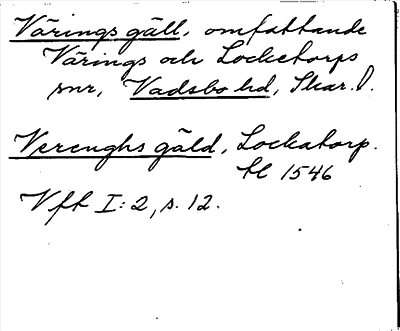 Värings gäll, omfattande
Värings och Locketorps
snr, Vadsbo hd, Skar. l.
Verenghs gäld, Lockatorp.
tl 1546
Vfk I:2, s. 12.